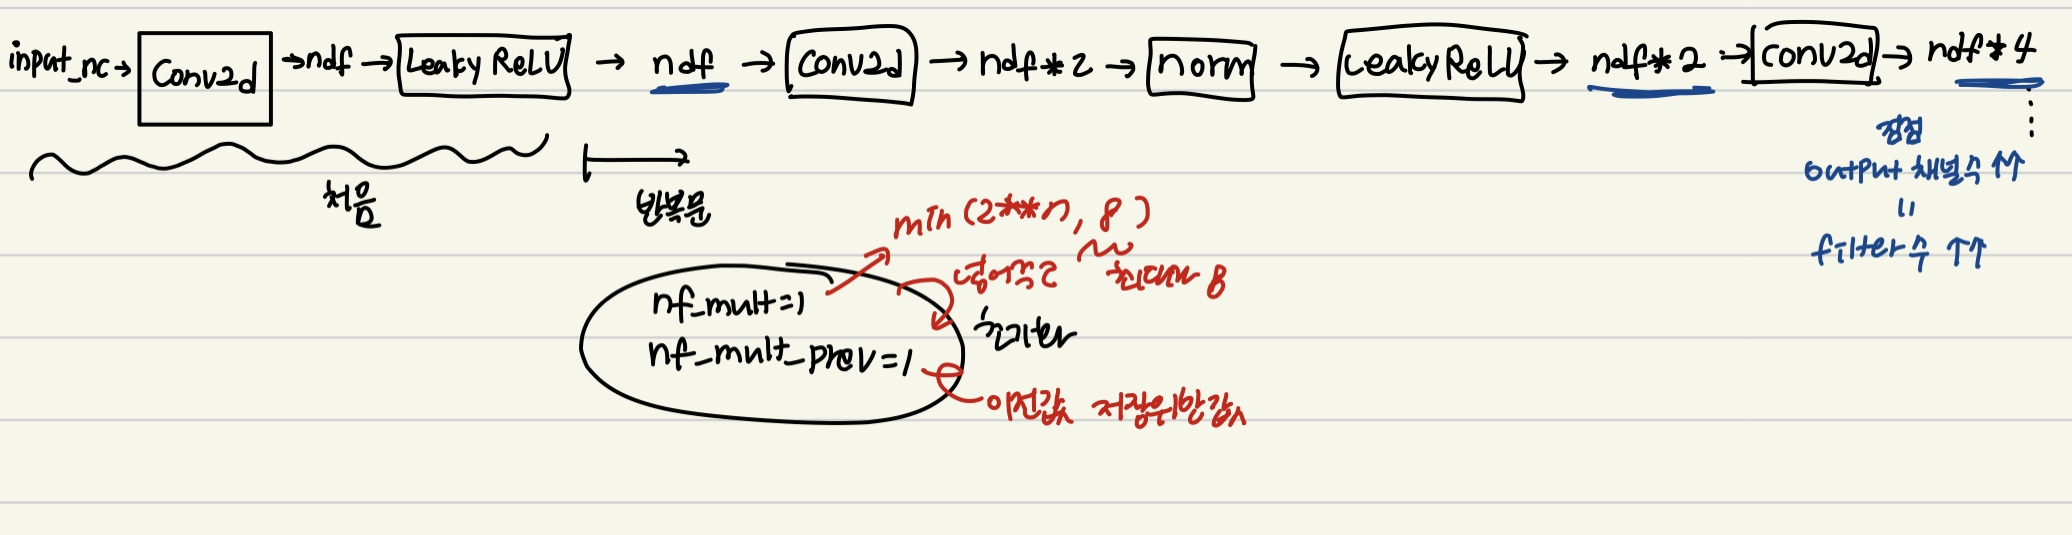 input_nc → Conv2d → ndf → Leaky ReLU → ndf → Conv2d → ndf*2 → norm → LeakyReLU → ndf*2 → conv2d → ndf*4
점점
output 채널수 ↑↑
=
filter 수 ↑↑
처음
반복문
min (2**n, 8)
넣어주고
최대가 8
nf_mult=1
nf_mult_prev=1
초기값
이전값 저장위한 값